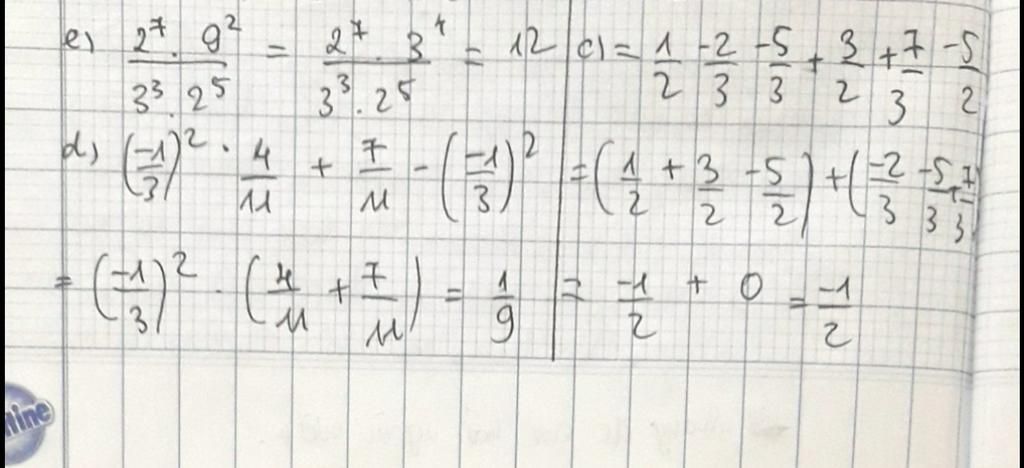 e) \frac{2^7 . 9^2}{3^3 . 2^5} = \frac{2^7 . 3^4}{3^3 . 2^5} = 12
d) (\frac{-1}{3})^2 . \frac{4}{11} + \frac{7}{11} - (\frac{-1}{3})^2
= (\frac{-1}{3})^2 . (\frac{4}{11} + \frac{7}{11}) = \frac{1}{9}
c) = \frac{1}{2} \frac{-2}{3} \frac{-5}{3} + \frac{3}{2} + \frac{7}{3} \frac{-5}{2}
= (\frac{1}{2} + \frac{3}{2} \frac{-5}{2}) + (\frac{-2}{3} \frac{-5}{3} + \frac{7}{3})
= \frac{-1}{2} + 0 = \frac{-1}{2}